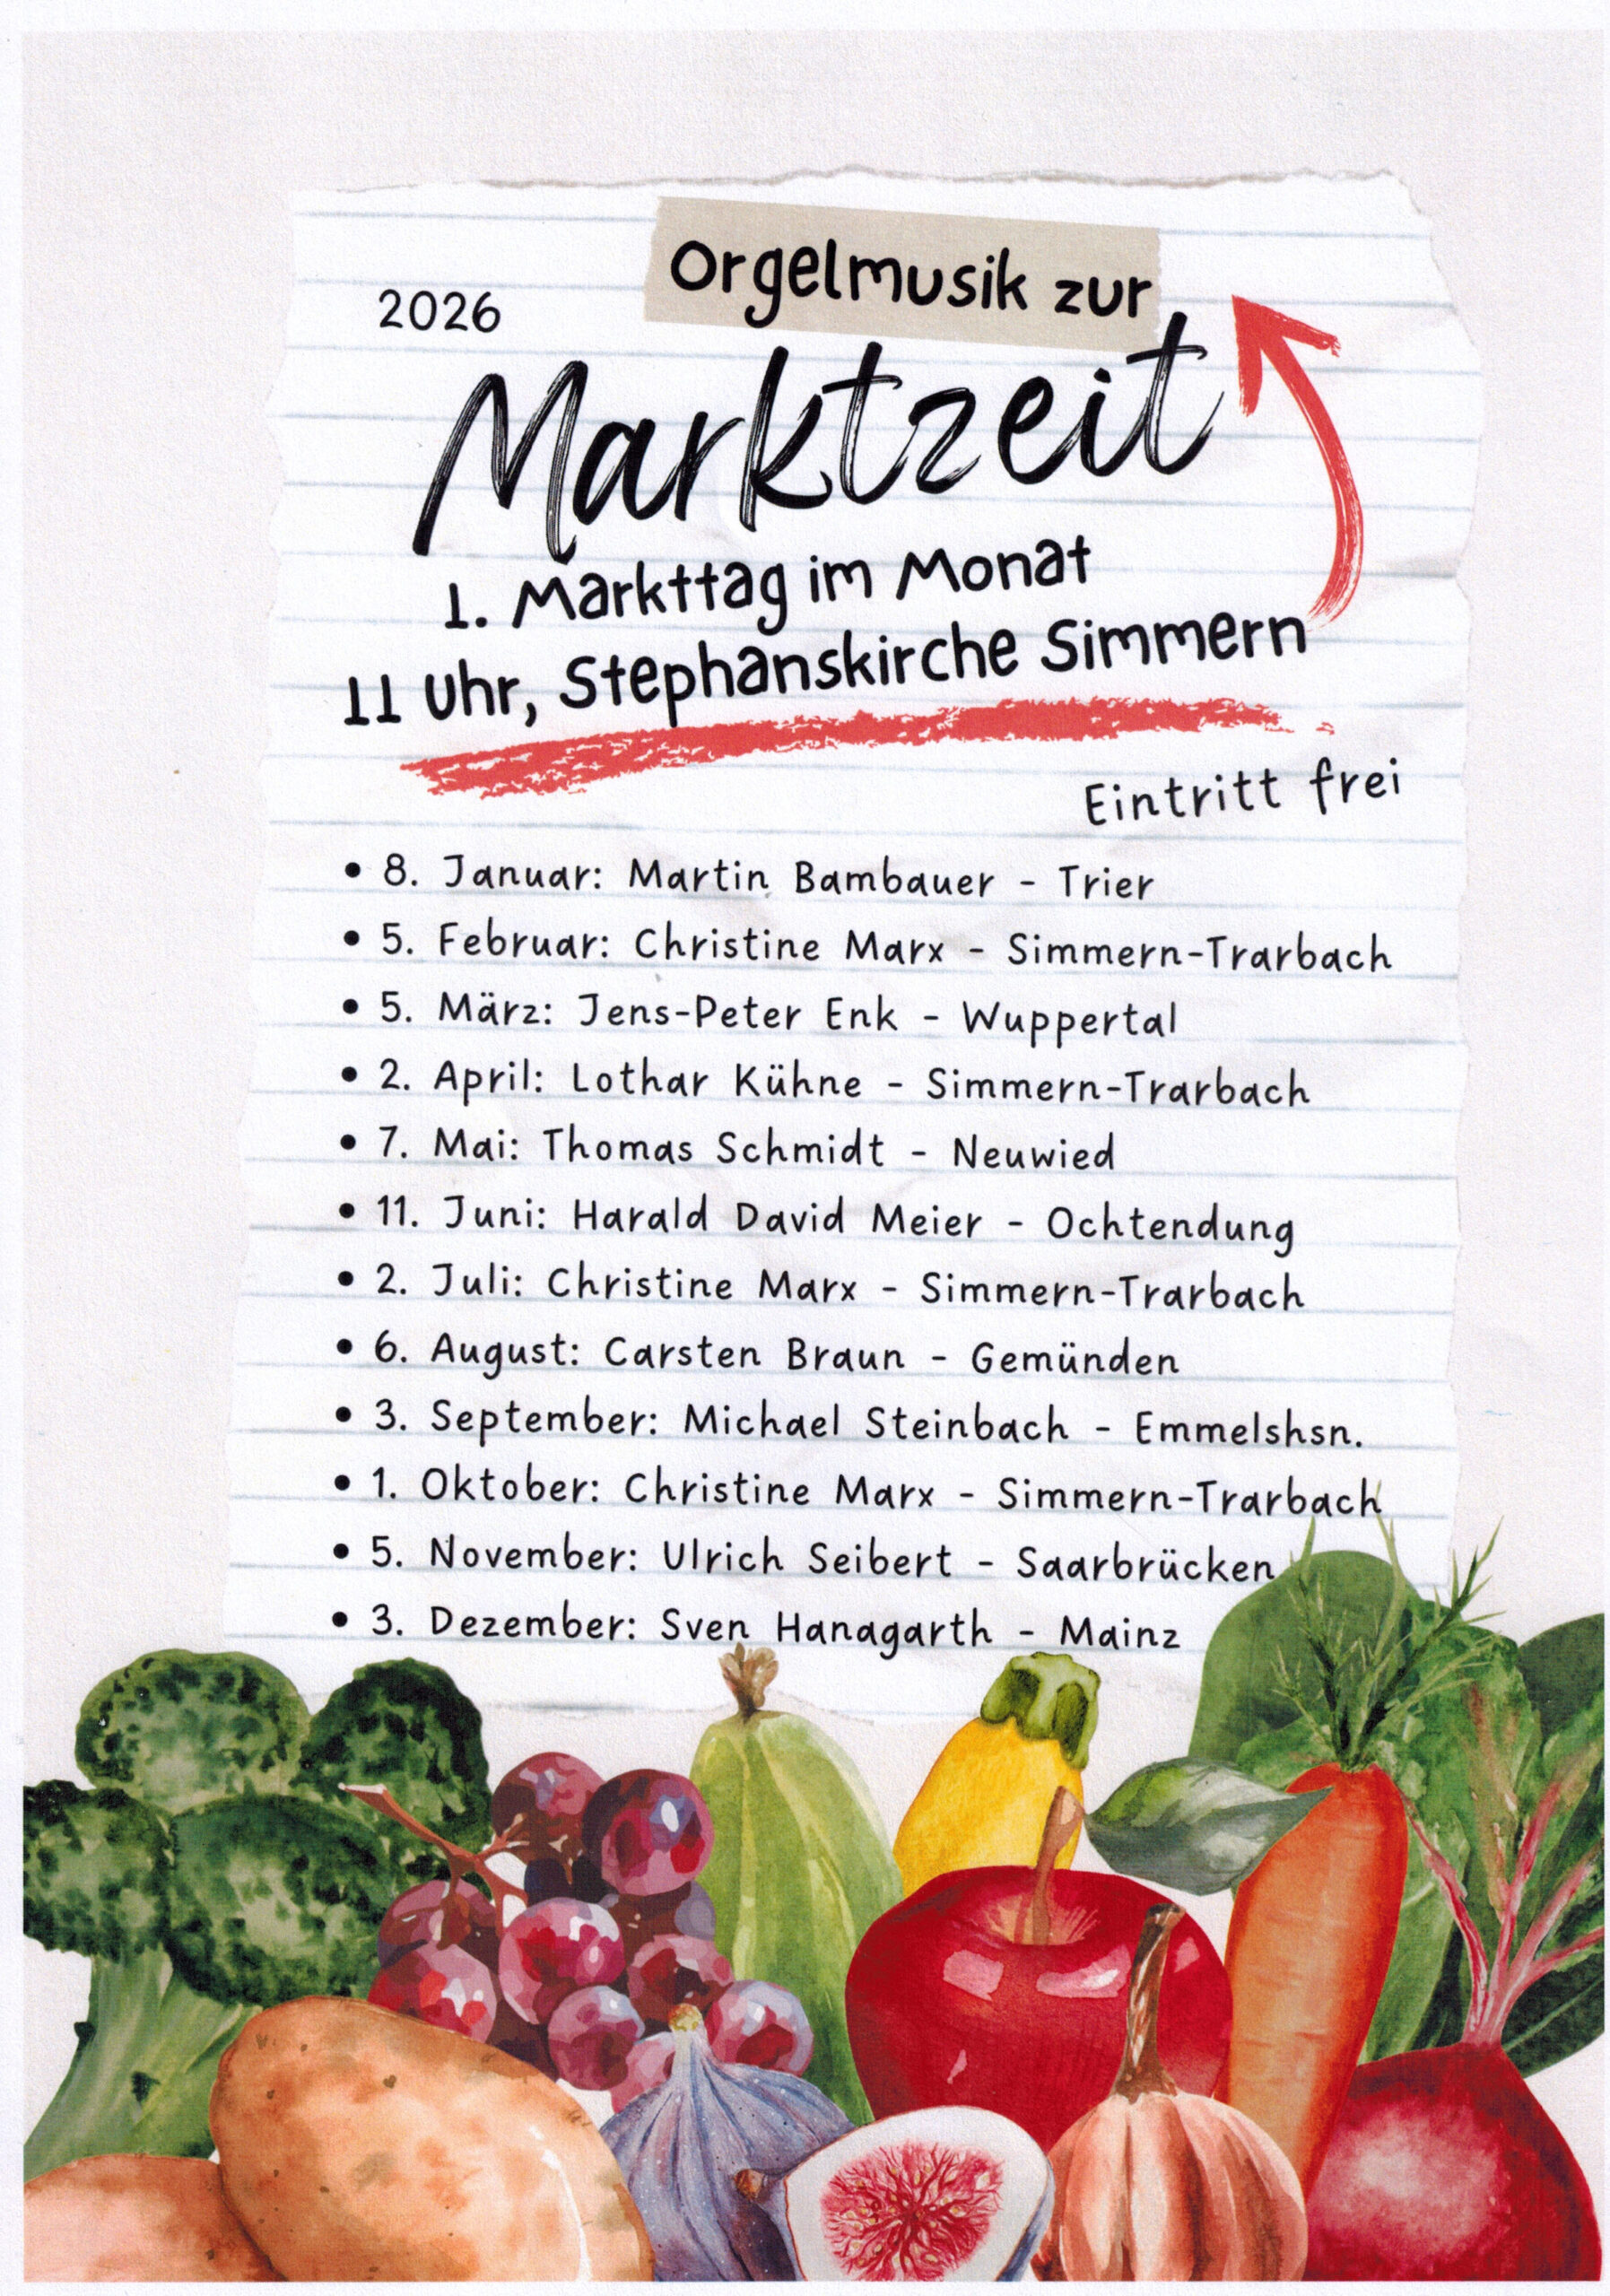 Orgelmusik zur
2026
Marktzeit
1. Markttag im Monat
11 Uhr, Stephanskirche Simmern
Eintritt frei
• 8. Januar: Martin Bambauer - Trier
• 5. Februar: Christine Marx - Simmern-Trarbach
• 5. März: Jens-Peter Enk - Wuppertal
• 2. April: Lothar Kühne - Simmern-Trarbach
• 7. Mai: Thomas Schmidt - Neuwied
• 11. Juni: Harald David Meier - Ochtendung
• 2. Juli: Christine Marx - Simmern-Trarbach
• 6. August: Carsten Braun - Gemünden
• 3. September: Michael Steinbach - Emmelshsn.
• 1. Oktober: Christine Marx - Simmern-Trarbach
• 5. November: Ulrich Seibert - Saarbrücken
• 3. Dezember: Sven Hanagarth - Mainz